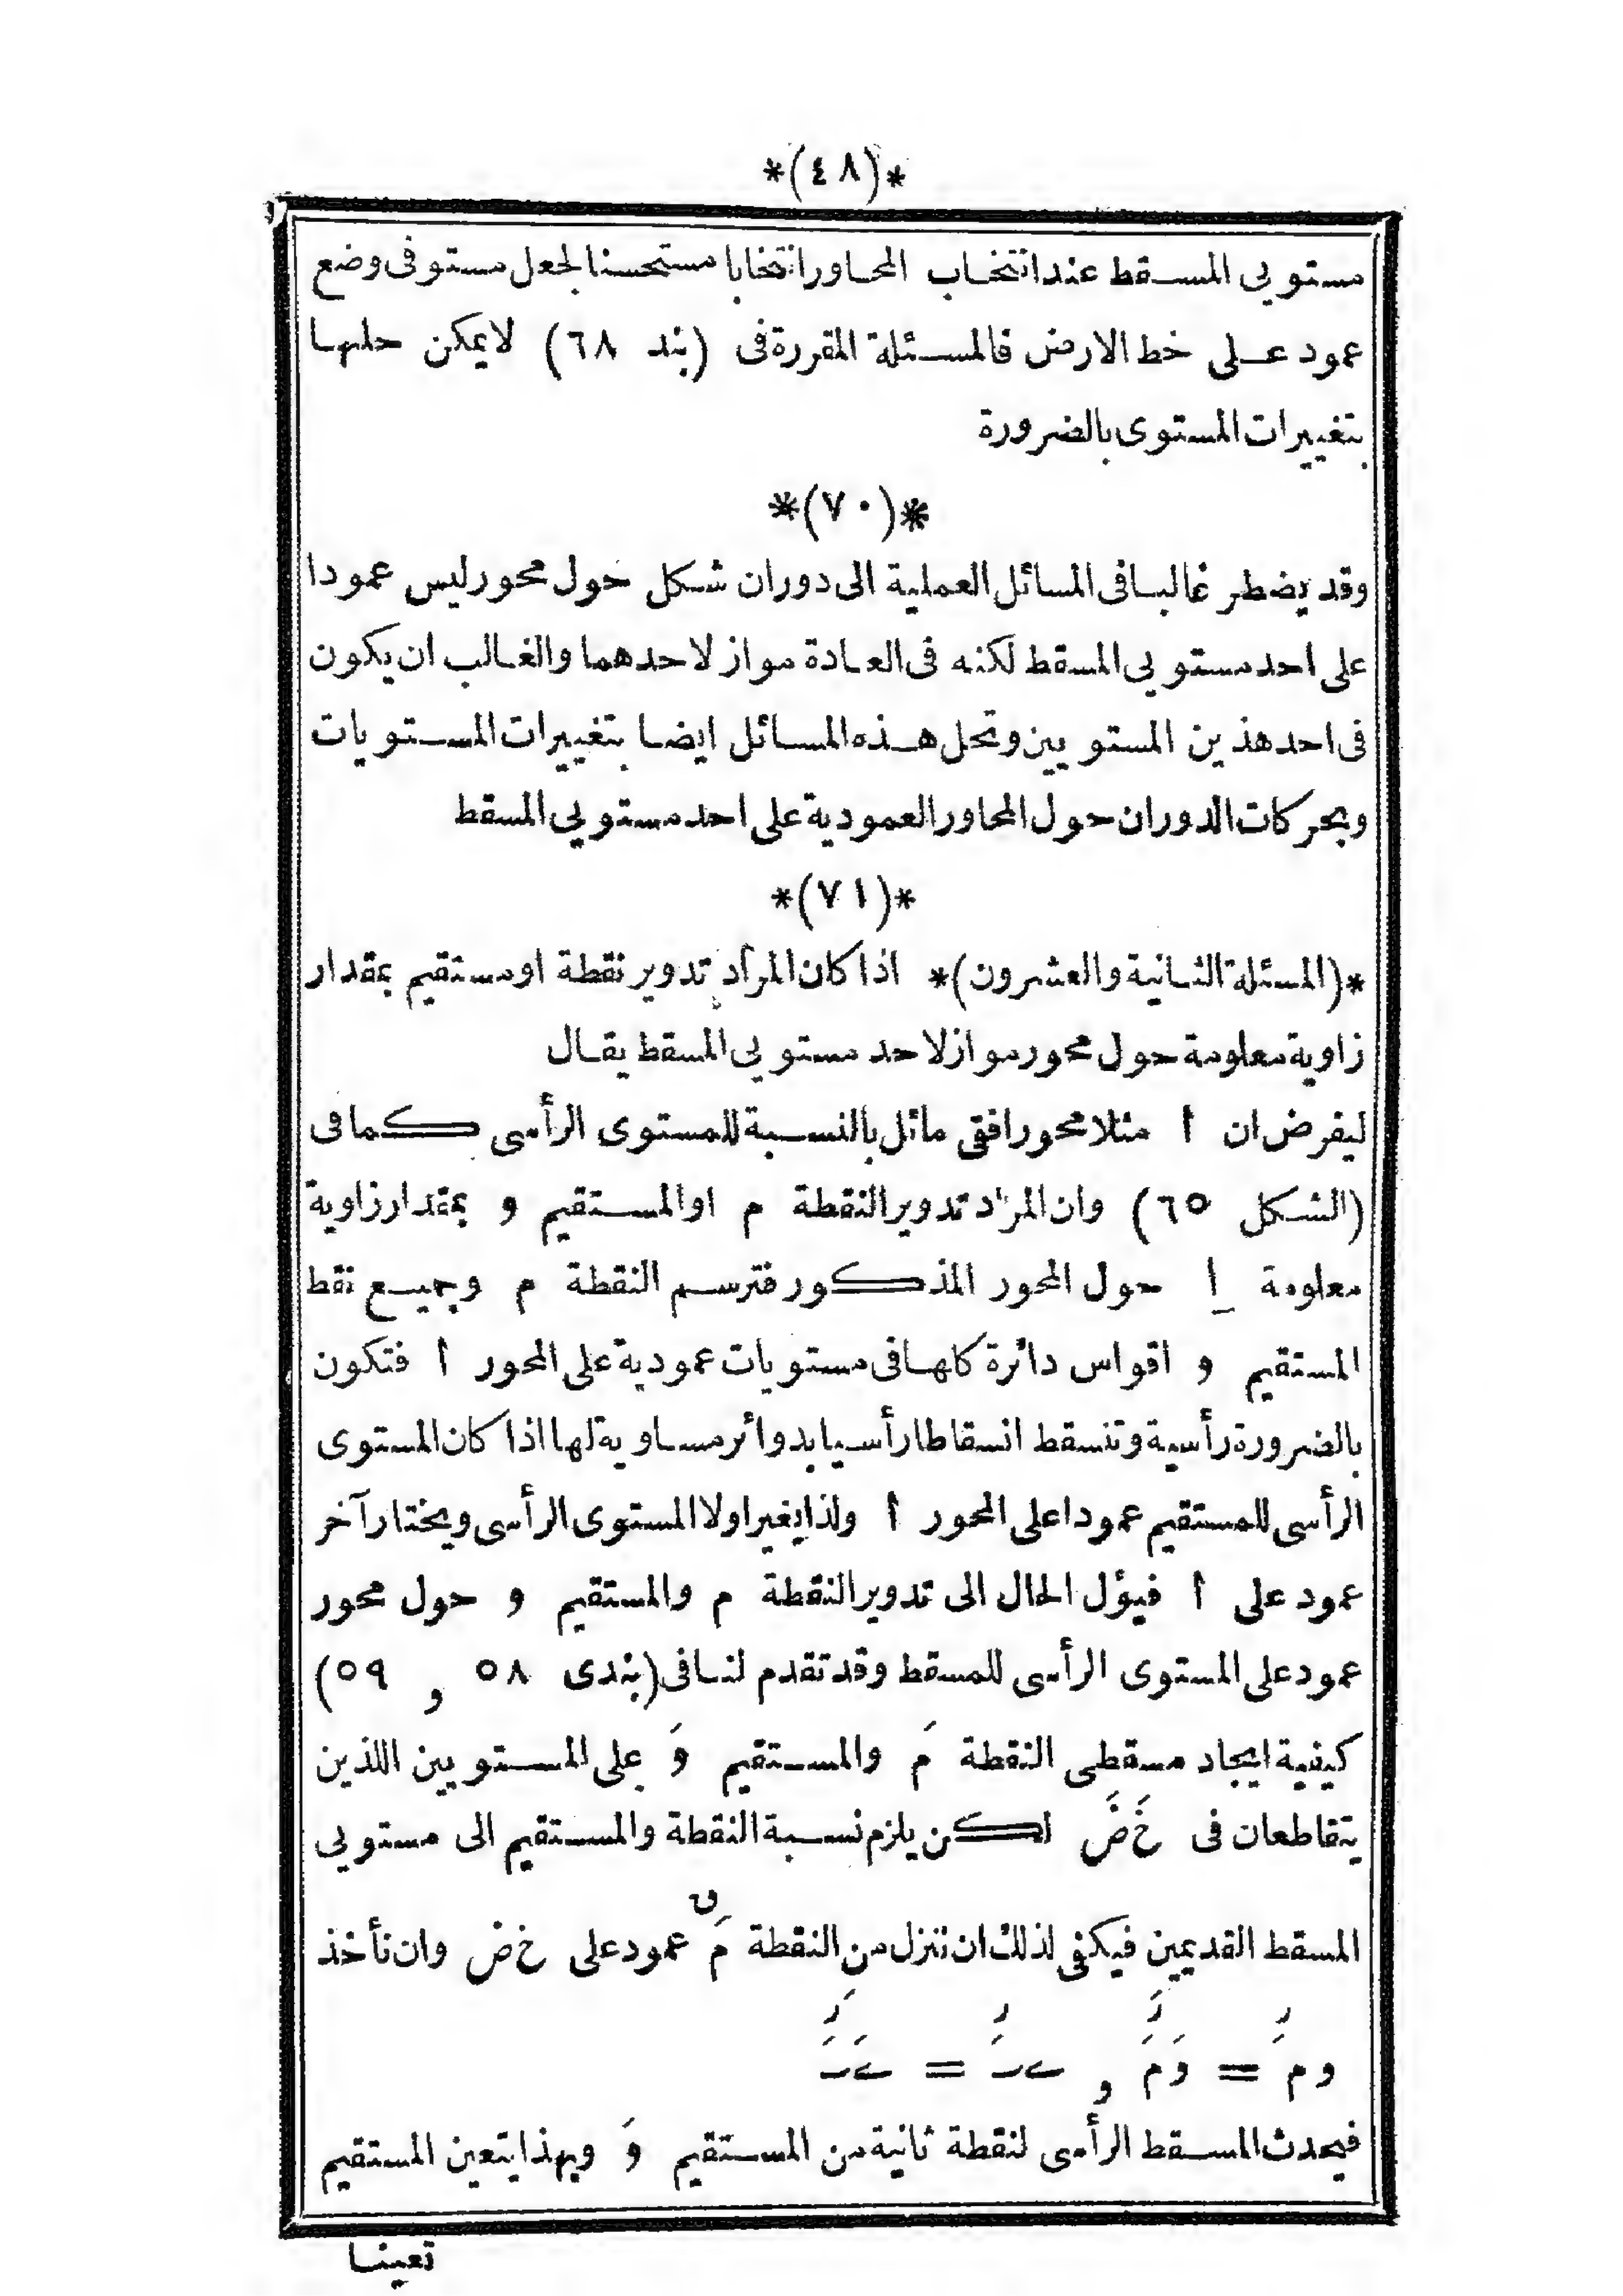 *(٤٨)*
مستويى المسقط عند انتخاب المحاور انتخابا مستحسنا لجعل مستو فى وضع
عمود على خط الارض فالمسئلة المقررة فى (بند ٦٨) لا يمكن حلها
بتغييرات المستوى بالضرورة
*(٧٠)*
وقد يضطر غالبا فى المسائل العملية الى دوران شكل حول محور ليس عمودا
على احد مستويى المسقط لكنه فى العادة مواز لاحدهما والغالب ان يكون
فى احد هذين المستويين وتحل هذه المسائل ايضا بتغييرات المستويات
وبحركات الدوران حول المحاور العمودية على احد مستويى المسقط
*(٧١)*
*(المسئلة الثانية والعشرون)* اذا كان المراد تدوير نقطة او مستقيم بمقدار
زاوية معلومة حول محور مواز لاحد مستويى المسقط يقال
ليفرض ان أ مثلا محور افقى مائل بالنسبة للمستوى الرأسى كما فى
(الشكل ٦٥) وان المراد تدوير النقطة م او المستقيم و بمقدار زاوية
معلومة أ حول المحور المذكور فترسم النقطة م وجميع نقط
المستقيم و اقواس دائرة كلها فى مستويات عمودية على المحور أ فتكون
بالضرورة رأسية وتنسقط انسقاطا رأسيا بدوائر مساوية لها اذا كان المستوى
الرأسى للمستقيم عمودا على المحور أ ولذا يغير اولا المستوى الرأسى ويختار آخر
عمود على أ فيؤل الحال الى تدوير النقطة م والمستقيم و حول محور
عمود على المستوى الرأسى للمسقط وقد تقدم لنا فى (بندى ٥٨ و ٥٩)
كيفية ايجاد مسقطى النقطة مَ والمستقيم وَ على المستويين اللذين
يتقاطعان فى خَ ضَ لكن يلزم نسبة النقطة والمستقيم الى مستويى
المسقط القديمين فيكفى لذلك ان ننزل من النقطة مَ عمود على خ ض وان نأخذ
و م = وَ مَ و =
فيحدث المسقط الرأسى لنقطة ثانية من المستقيم وَ وبهذا يتعين المستقيم
تعينا